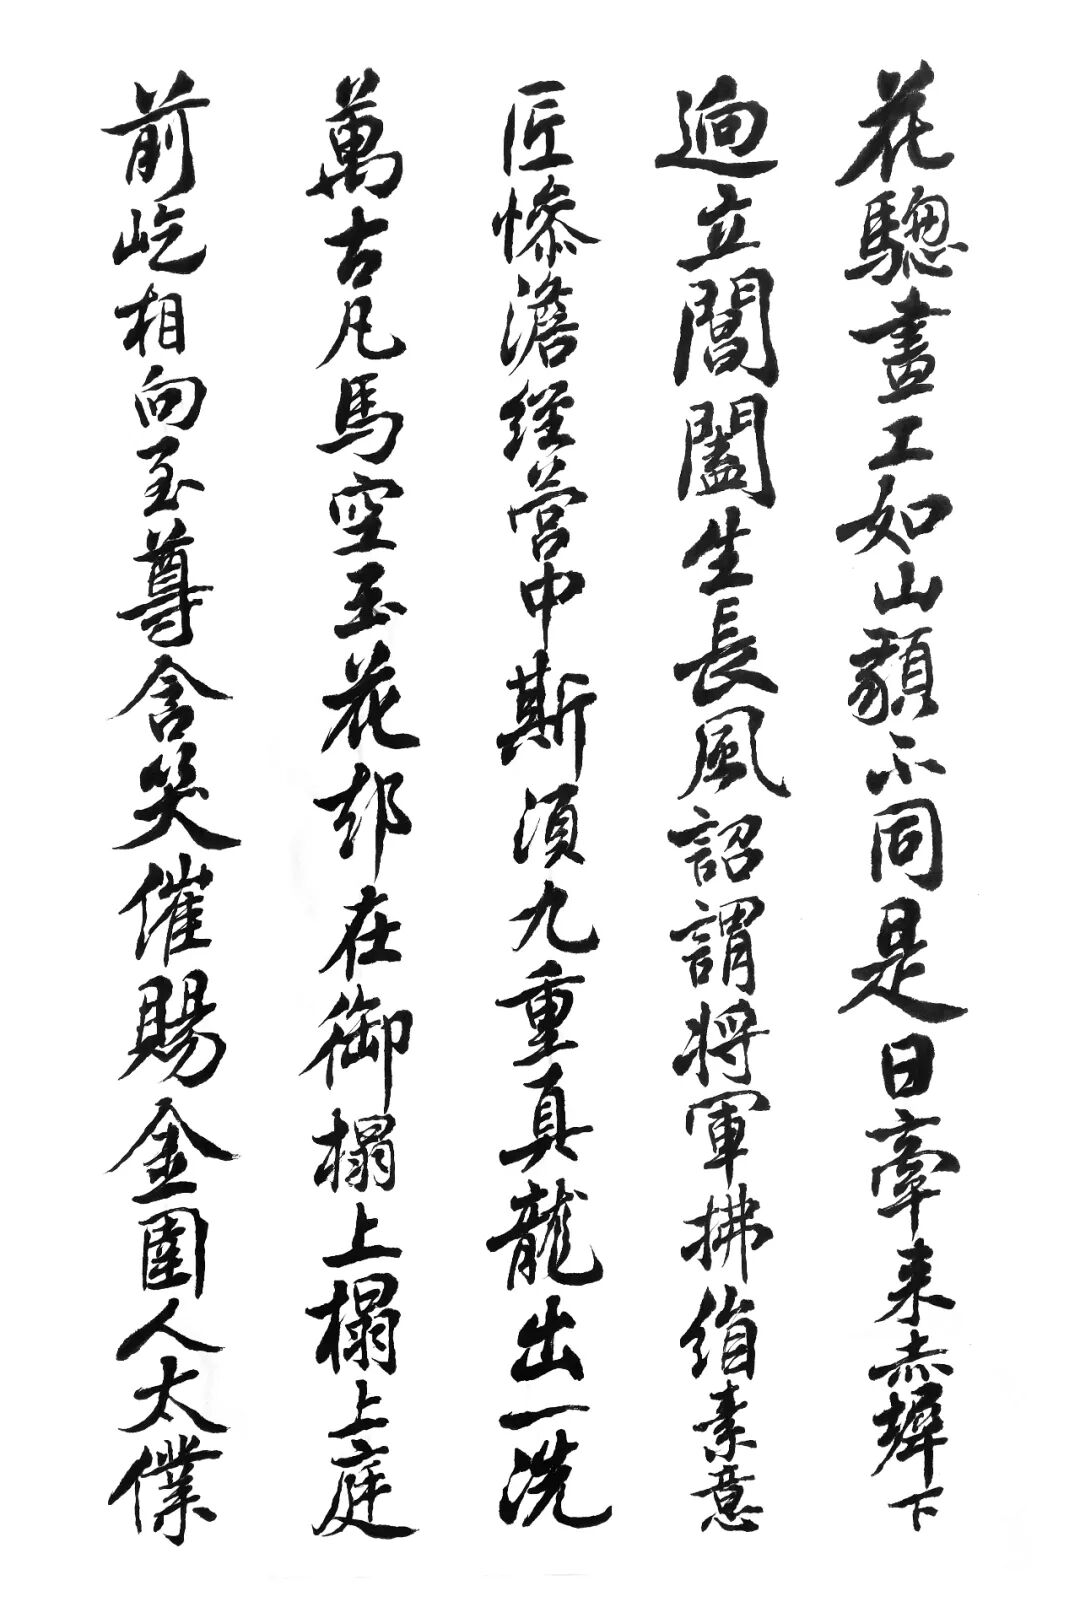 花驄畫工如山貌不同是日牽来赤墀下
迥立閶闔生長風詔謂將軍拂絹素意
匠慘澹經營中斯須九重真龍出一洗
萬古凡馬空玉花却在御榻上榻上庭
前屹相向至尊含笑催賜金圉人太僕